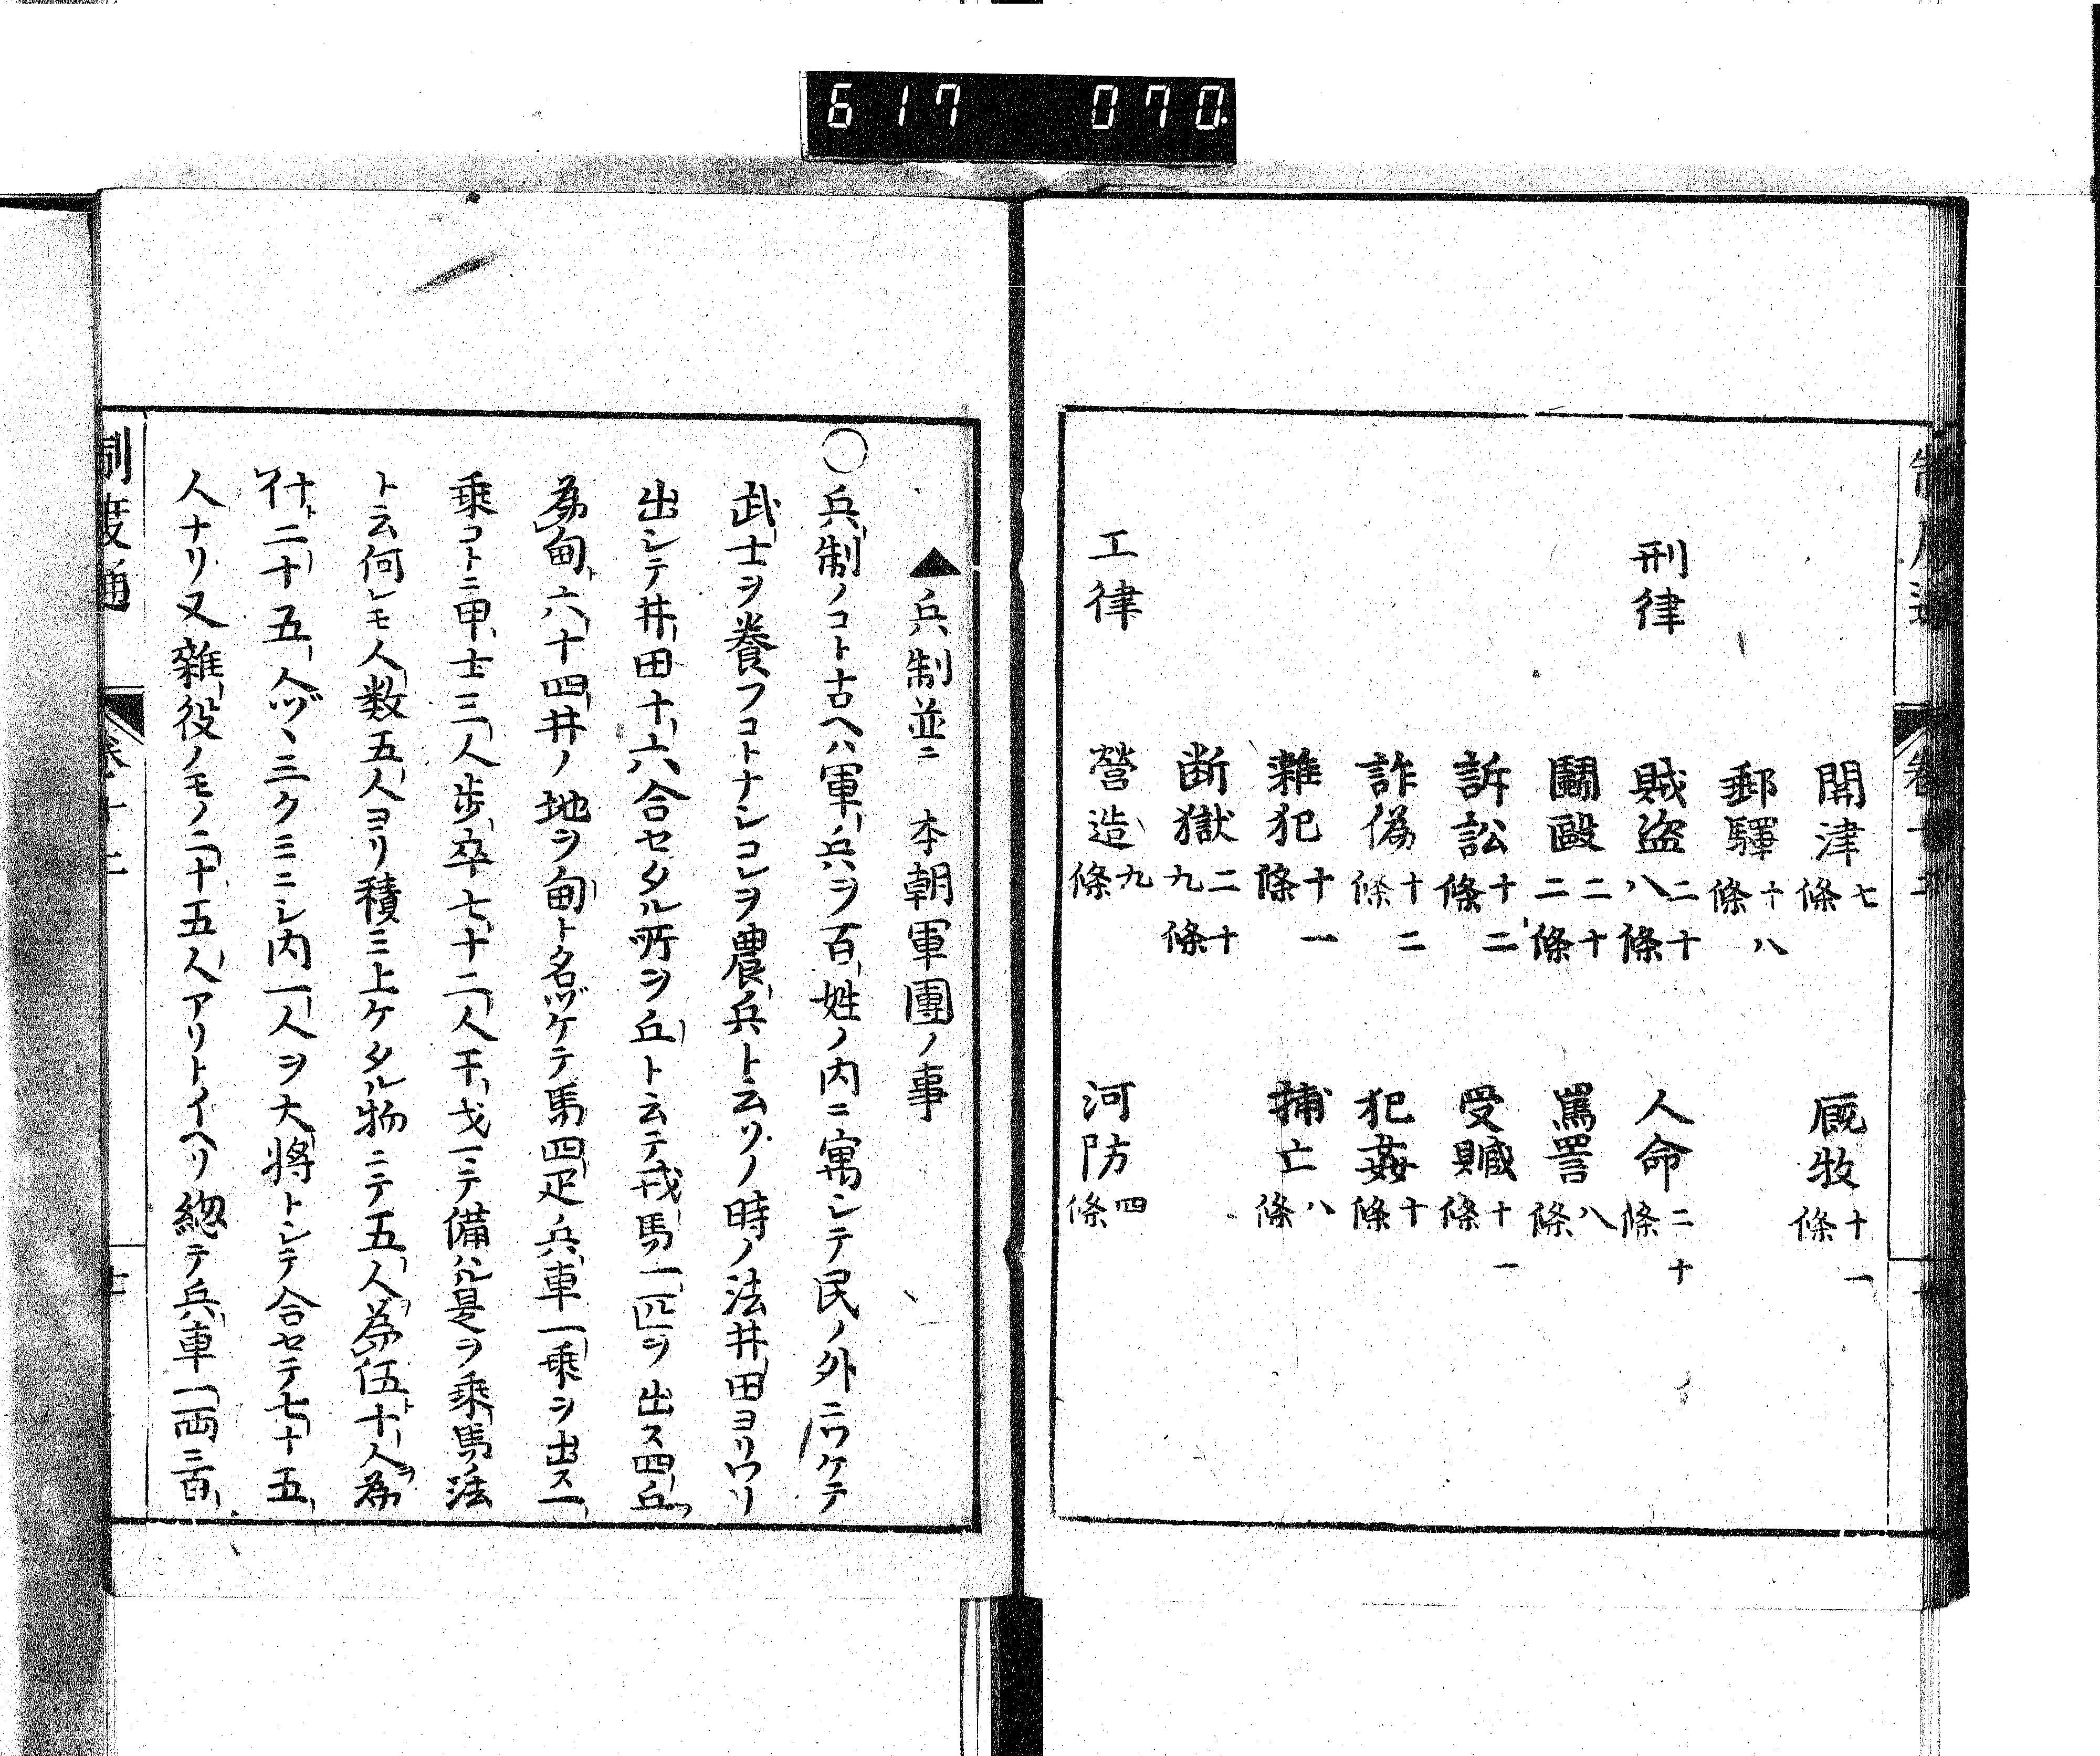 617 070
關津 七條 厩牧 十一條
郵驛 十八條
刑律 賊盗 二十八條 人命 二十條
鬪毆 二十二條 罵詈 八條
訴訟 十二條 受贓 十一條
詐偽 十二條 犯姦 十條
雜犯 十一條 捕亡 八條
断獄 二十九條
工律 營造 九條 河防 四條
▲兵制並ニ 本朝軍團ノ事
〇兵制ノコト古ヘハ軍兵ヲ百姓ノ内ニ寓シテ民ノ外ニワケテ
武士ヲ養フコトナシコレヲ農兵ト云ソノ時ノ法井田ヨリワリ
出シテ井田十六合セタル所ヲ丘ト云テ戎馬一匹ヲ出ス四丘
為甸六十四井ノ地ヲ甸ト名ヅケテ馬四疋兵車一乗ヲ出ス一
乗コトニ甲士三人歩卒七十二人干戈ニテ備ハル是ヲ乗馬ノ法
ト云何レモ人数五人ヨリ積ミ上ケタル物ニテ五人為伍十人為
什二十五人ヅヽ三クミニシ内一人ヲ大將トシテ合セテ七十五
人ナリ又雜役ノモノ二十五人アリトイヘリ総テ兵車一両ニ百
制度通 卷十二